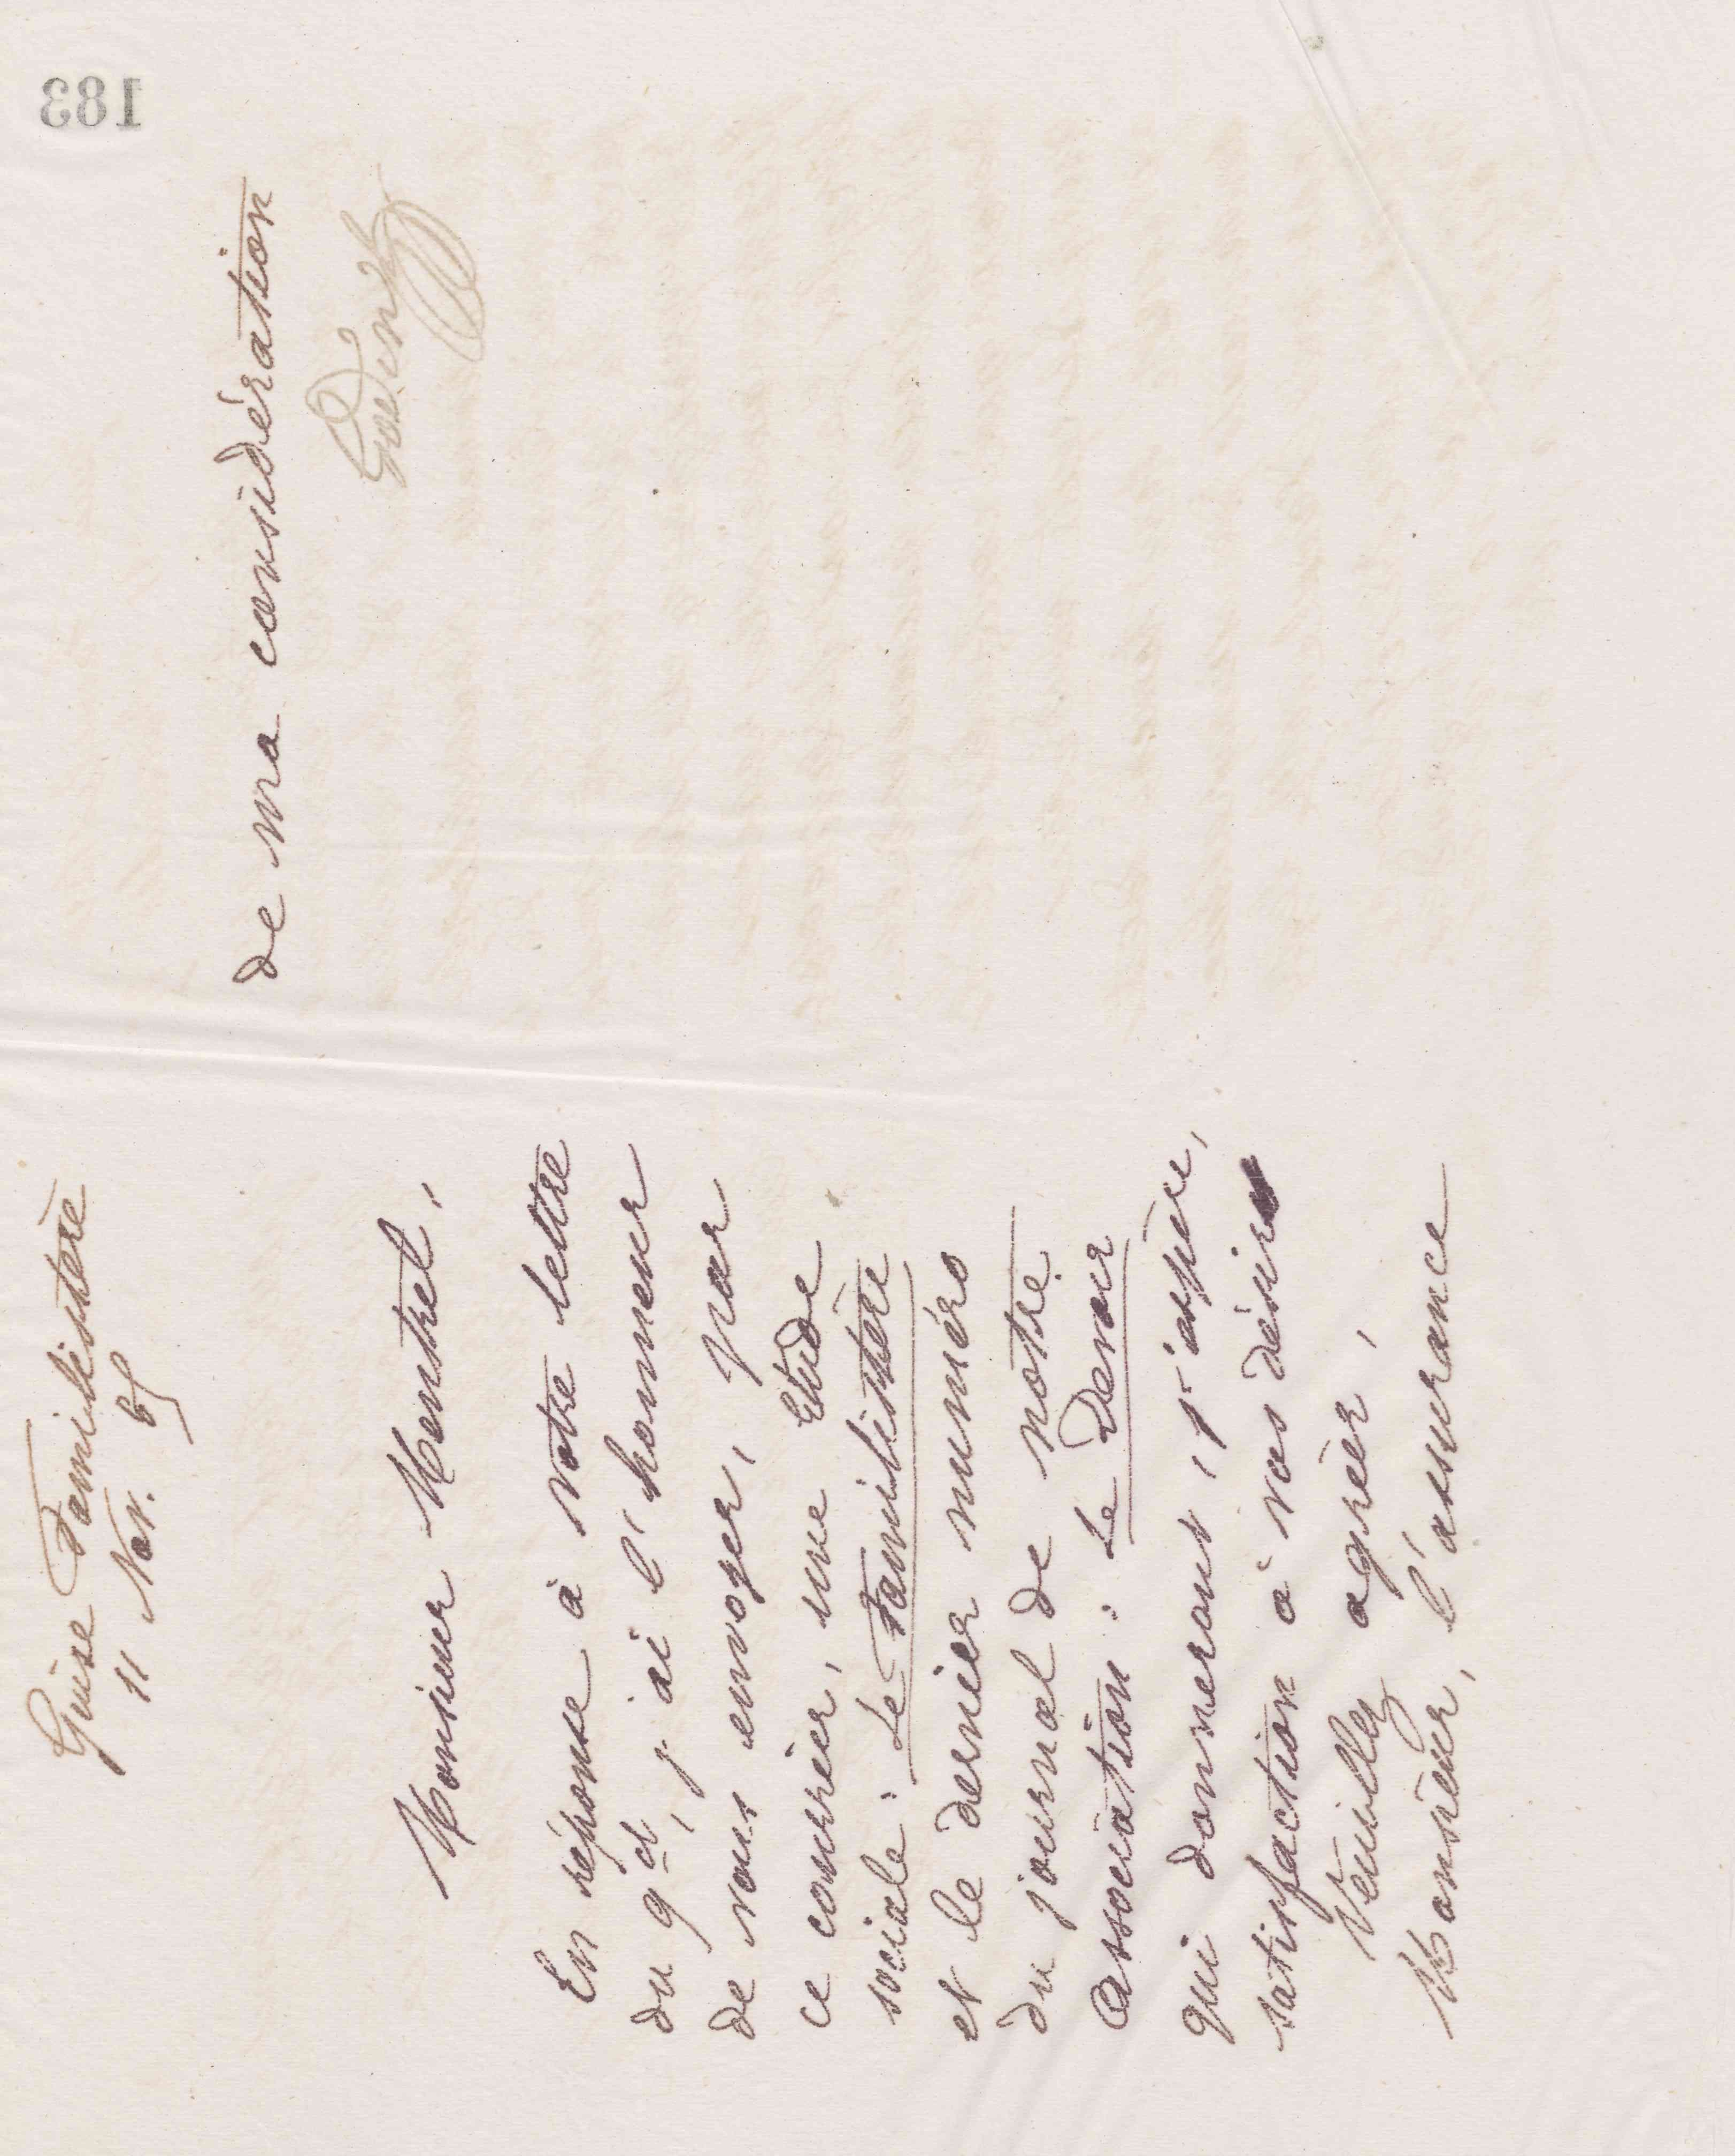 183
Guise Familistère
11 Nov. 85
Monsieur Montrel,
En réponse à votre lettre
du 9 ct, j'ai l'honneur
de vous envoyer, par
ce courrier, une Etude
sociale : Le Familistère
et le dernier numéro
du journal de notre
Association : Le Devoir
qui donneront, j'espère,
satisfaction à vos désirs
Veuillez agréer,
Monsieur, l'assurance
de ma considération
Godin